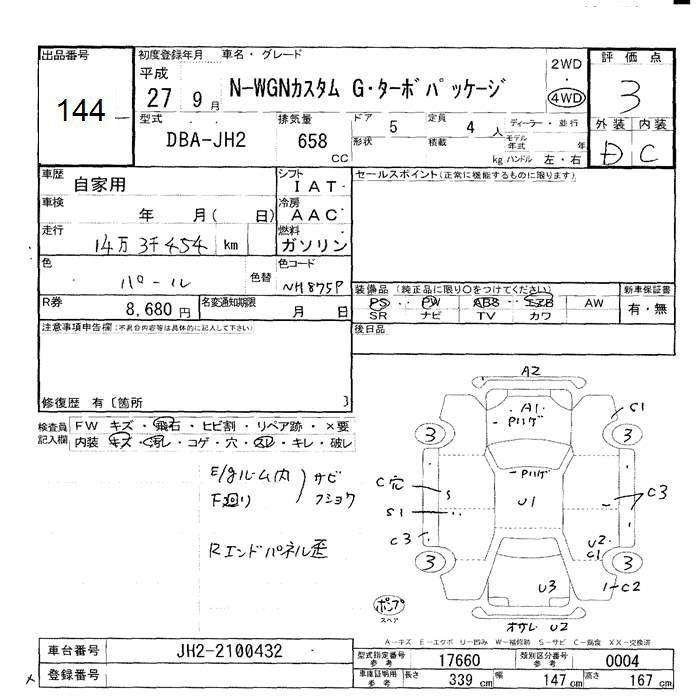 出品番号
144
初度登録年月
平成
27 9月
車名・グレード
N-WGNカスタム G・ターボパッケージ
2WD
・
4WD
評価点
3
外装 内装
D C
型式
DBA-JH2
排気量
658
CC
ドア
5
形状
定員
4人
積載
kg
ディーラー・並行
モデル年式 年
ハンドル 左・右
車歴
自家用
シフト
IAT
車検
年 月( 日)
冷房
AAC
走行
14万3千454 km
燃料
ガソリン
色
パール
色替
色コード
NH875P
R券
8,680円
名変通知期限
月 日
セールスポイント(正常に機能するものに限ります)
装備品 (純正品に限り〇をつけてください)
PS・・PW ABS エアB AW
SR ナビ TV カワ
新車保証書
有・無
後日品
注意事項申告欄(不具合内容等は具体的に記入して下さい)
修復歴 有〔箇所 〕
検査員記入欄
FW キズ・飛石・ヒビ割・リペア跡・×要
内装 キズ・汚レ・コゲ・穴・スレ・キレ・破レ
E/gルーム内
F廻り
サビ
フショク
Rエンドパネル歪
A2
A1
Pハゲ
S1
3
3
Pハゲ
C穴
U1
S1
C3
C3
U2
C1
3
3
U3
1-C2
ポンプ
スペア
オサレ U2
A-キズ E-エクボ U-凹み W-補修跡 S-サビ C-腐食 XX-交換済
車台番号
JH2-2100432
登録番号
型式指定番号
参考
17660
類別区分番号
参考
0004
車庫証明用
参考
長さ 339 cm 幅 147 cm 高さ 167 cm